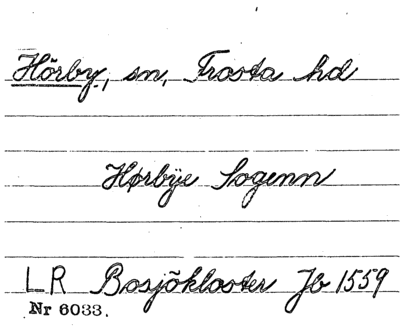 Hörby, sn, Frosta hd
Hørbÿe Sogenn
LR Bosjökloster Jb 1559
Nr 6033.